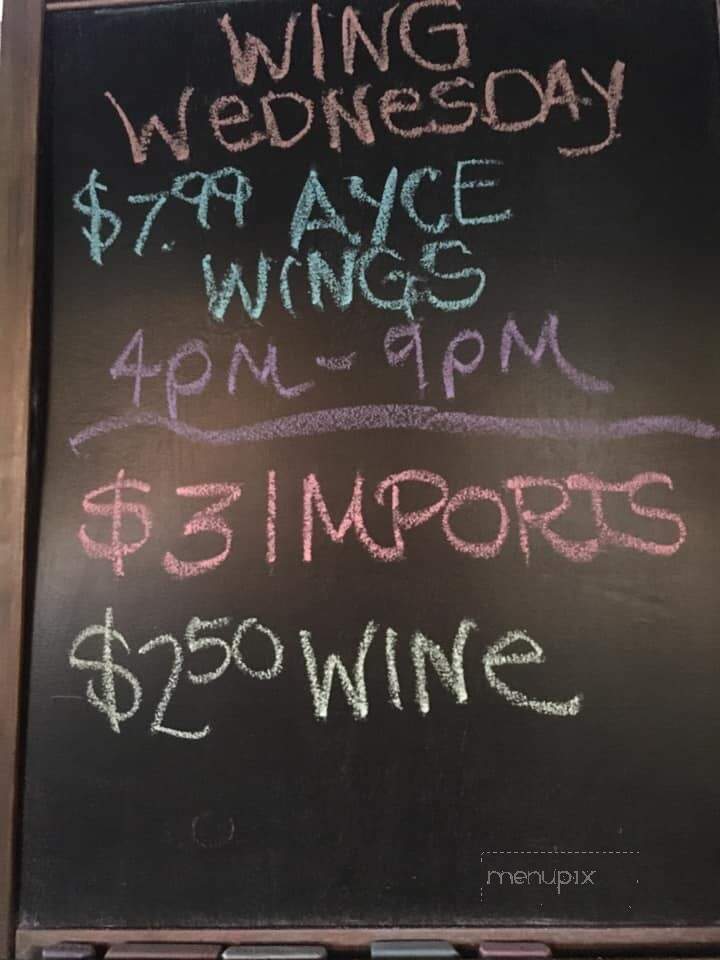 WING
WeDNesDAY
$7.99 AYCE
WINGS
4PM - 9PM
$3 IMPORTS
$2.50 WINe
menupix